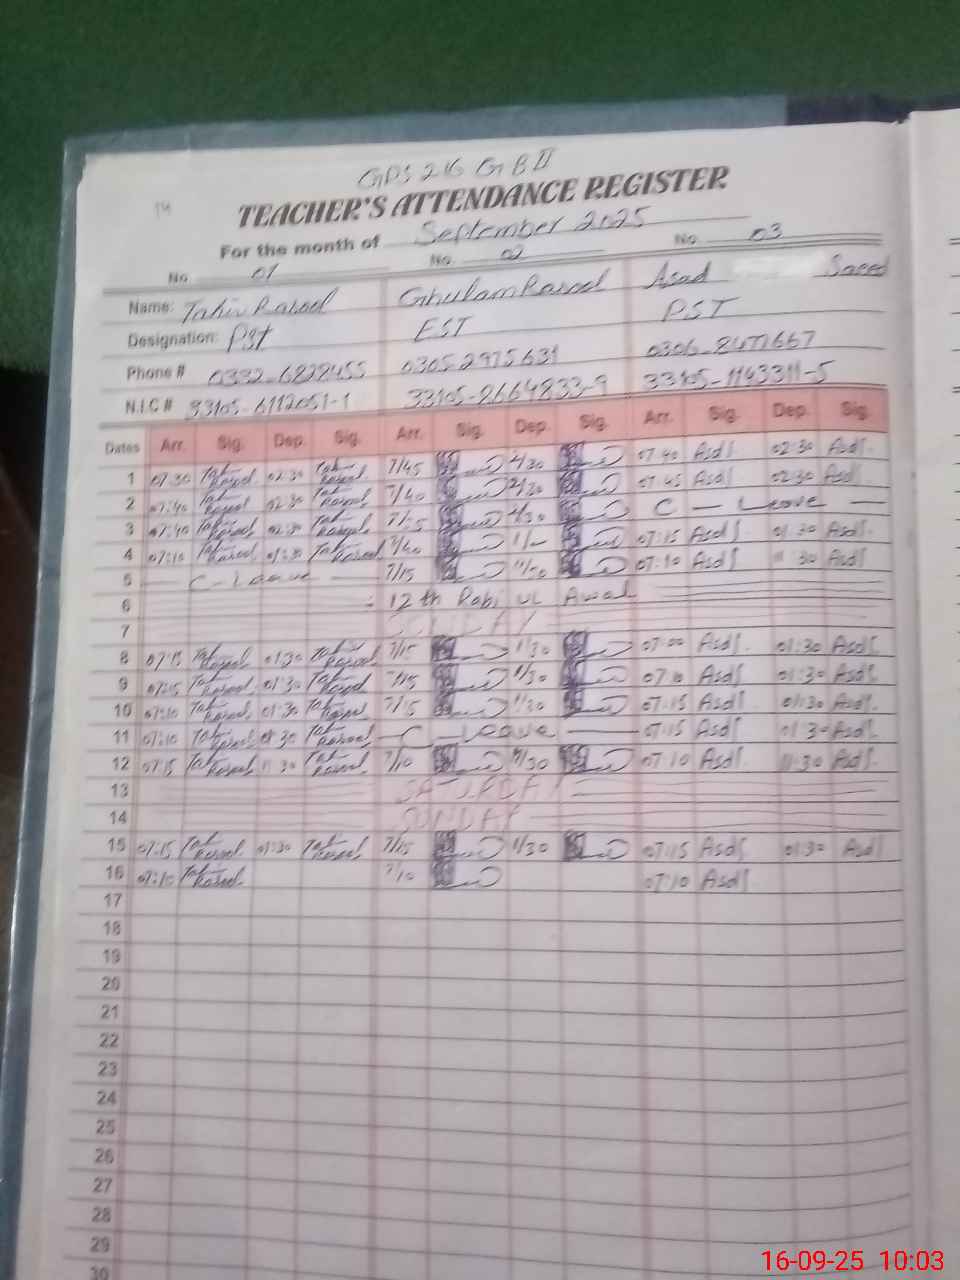 GPS 216 GB II
14
TEACHER'S ATTENDANCE REGISTER
For the month of September 2025
No. 01 No. 02 No. 03
Name: Tahir Rasool Ghulam Rasool Asad Saeed
Designation: PST EST PST
Phone # 0332-6828455 0305-2975631 0306-8477667
N.I.C # 33105-6112051-1 33105-2664833-9 33105-1143311-5
Dates Arr. Sig. Dep. Sig. Arr. Sig. Dep. Sig. Arr. Sig. Dep. Sig.
1 07:30 Tahir Rasool 02:30 Tahir Rasool 7/45 2/30 07:40 Asd 02:30 Asd
2 07:40 Tahir Rasool 02:30 Tahir Rasool 7/40 2/30 07:45 Asd 02:30 Asd
3 07:40 Tahir Rasool 02:30 Tahir Rasool C - Leave
4 07:10 Tahir Rasool 01:30 Tahir Rasool 7/40 07:15 Asd 01:30 Asd
5 C - Leave 7/15 07:10 Asd 11:30 Asd
6 12th Rabi ul Awal
7 SUNDAY
8 07:15 Tahir Rasool 01:30 Tahir Rasool 7/15 1/30 07:00 Asd 01:30 Asd
9 07:15 Tahir Rasool 01:30 Tahir Rasool 7/15 1/30 07:10 Asd 01:30 Asd
10 07:10 Tahir Rasool 01:30 Tahir Rasool 7/15 1/30 07:15 Asd 01:30 Asd
11 07:10 Tahir Rasool 01:30 Tahir Rasool C - Leave 07:15 Asd 01:30 Asd
12 07:15 Tahir Rasool 11:30 Tahir Rasool 7/10 11/30 07:10 Asd 11:30 Asd
13 SATURDAY
14 SUNDAY
15 07:15 Tahir Rasool 01:30 Tahir Rasool 7/15 1/30 07:15 Asd 01:30 Asd
16 07:10 Tahir Rasool 7/10 07:10 Asd
17
18
19
20
21
22
23
24
25
26
27
28
29
30
16-09-25 10:03